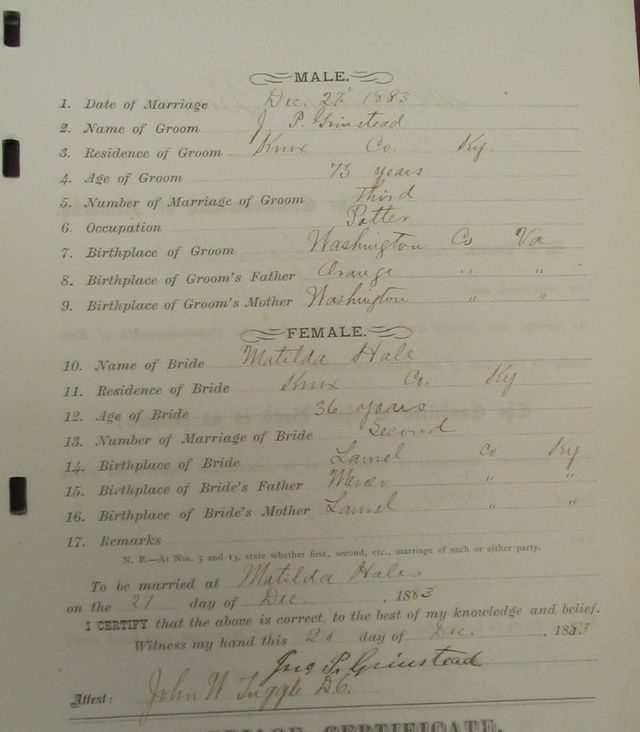 MALE.
1. Date of Marriage Dec. 27 1883
2. Name of Groom J P. Grinstead
3. Residence of Groom Knox Co. Ky.
4. Age of Groom 73 years
5. Number of Marriage of Groom Third
6. Occupation Potter
7. Birthplace of Groom Washington Co Va
8. Birthplace of Groom's Father Orange " "
9. Birthplace of Groom's Mother Washington " "
FEMALE.
10. Name of Bride Matilda Hale
11. Residence of Bride Knox Co. Ky
12. Age of Bride 36 years
13. Number of Marriage of Bride Second
14. Birthplace of Bride Laurel Co Ky
15. Birthplace of Bride's Father " "
16. Birthplace of Bride's Mother Laurel " "
17. Remarks
N. B.—At Nos. 5 and 13, state whether first, second, etc., marriage of each or either party.
To be married at Matilda Hales
on the 27 day of Dec. , 1883
I CERTIFY that the above is correct, to the best of my knowledge and belief.
Witness my hand this day of Dec. , 1883
Jno P. Grinstead
Attest: John W Tuggle D.C.
MARRIAGE CERTIFICATE.